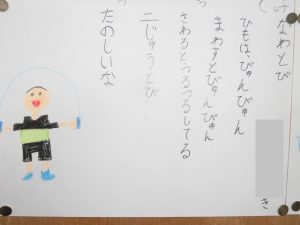 なわとび
き
ひもは、びゅんびゅん
まわすとびゅんびゅん
さわるとつるつるしてる
二じゅうとび
たのしいな